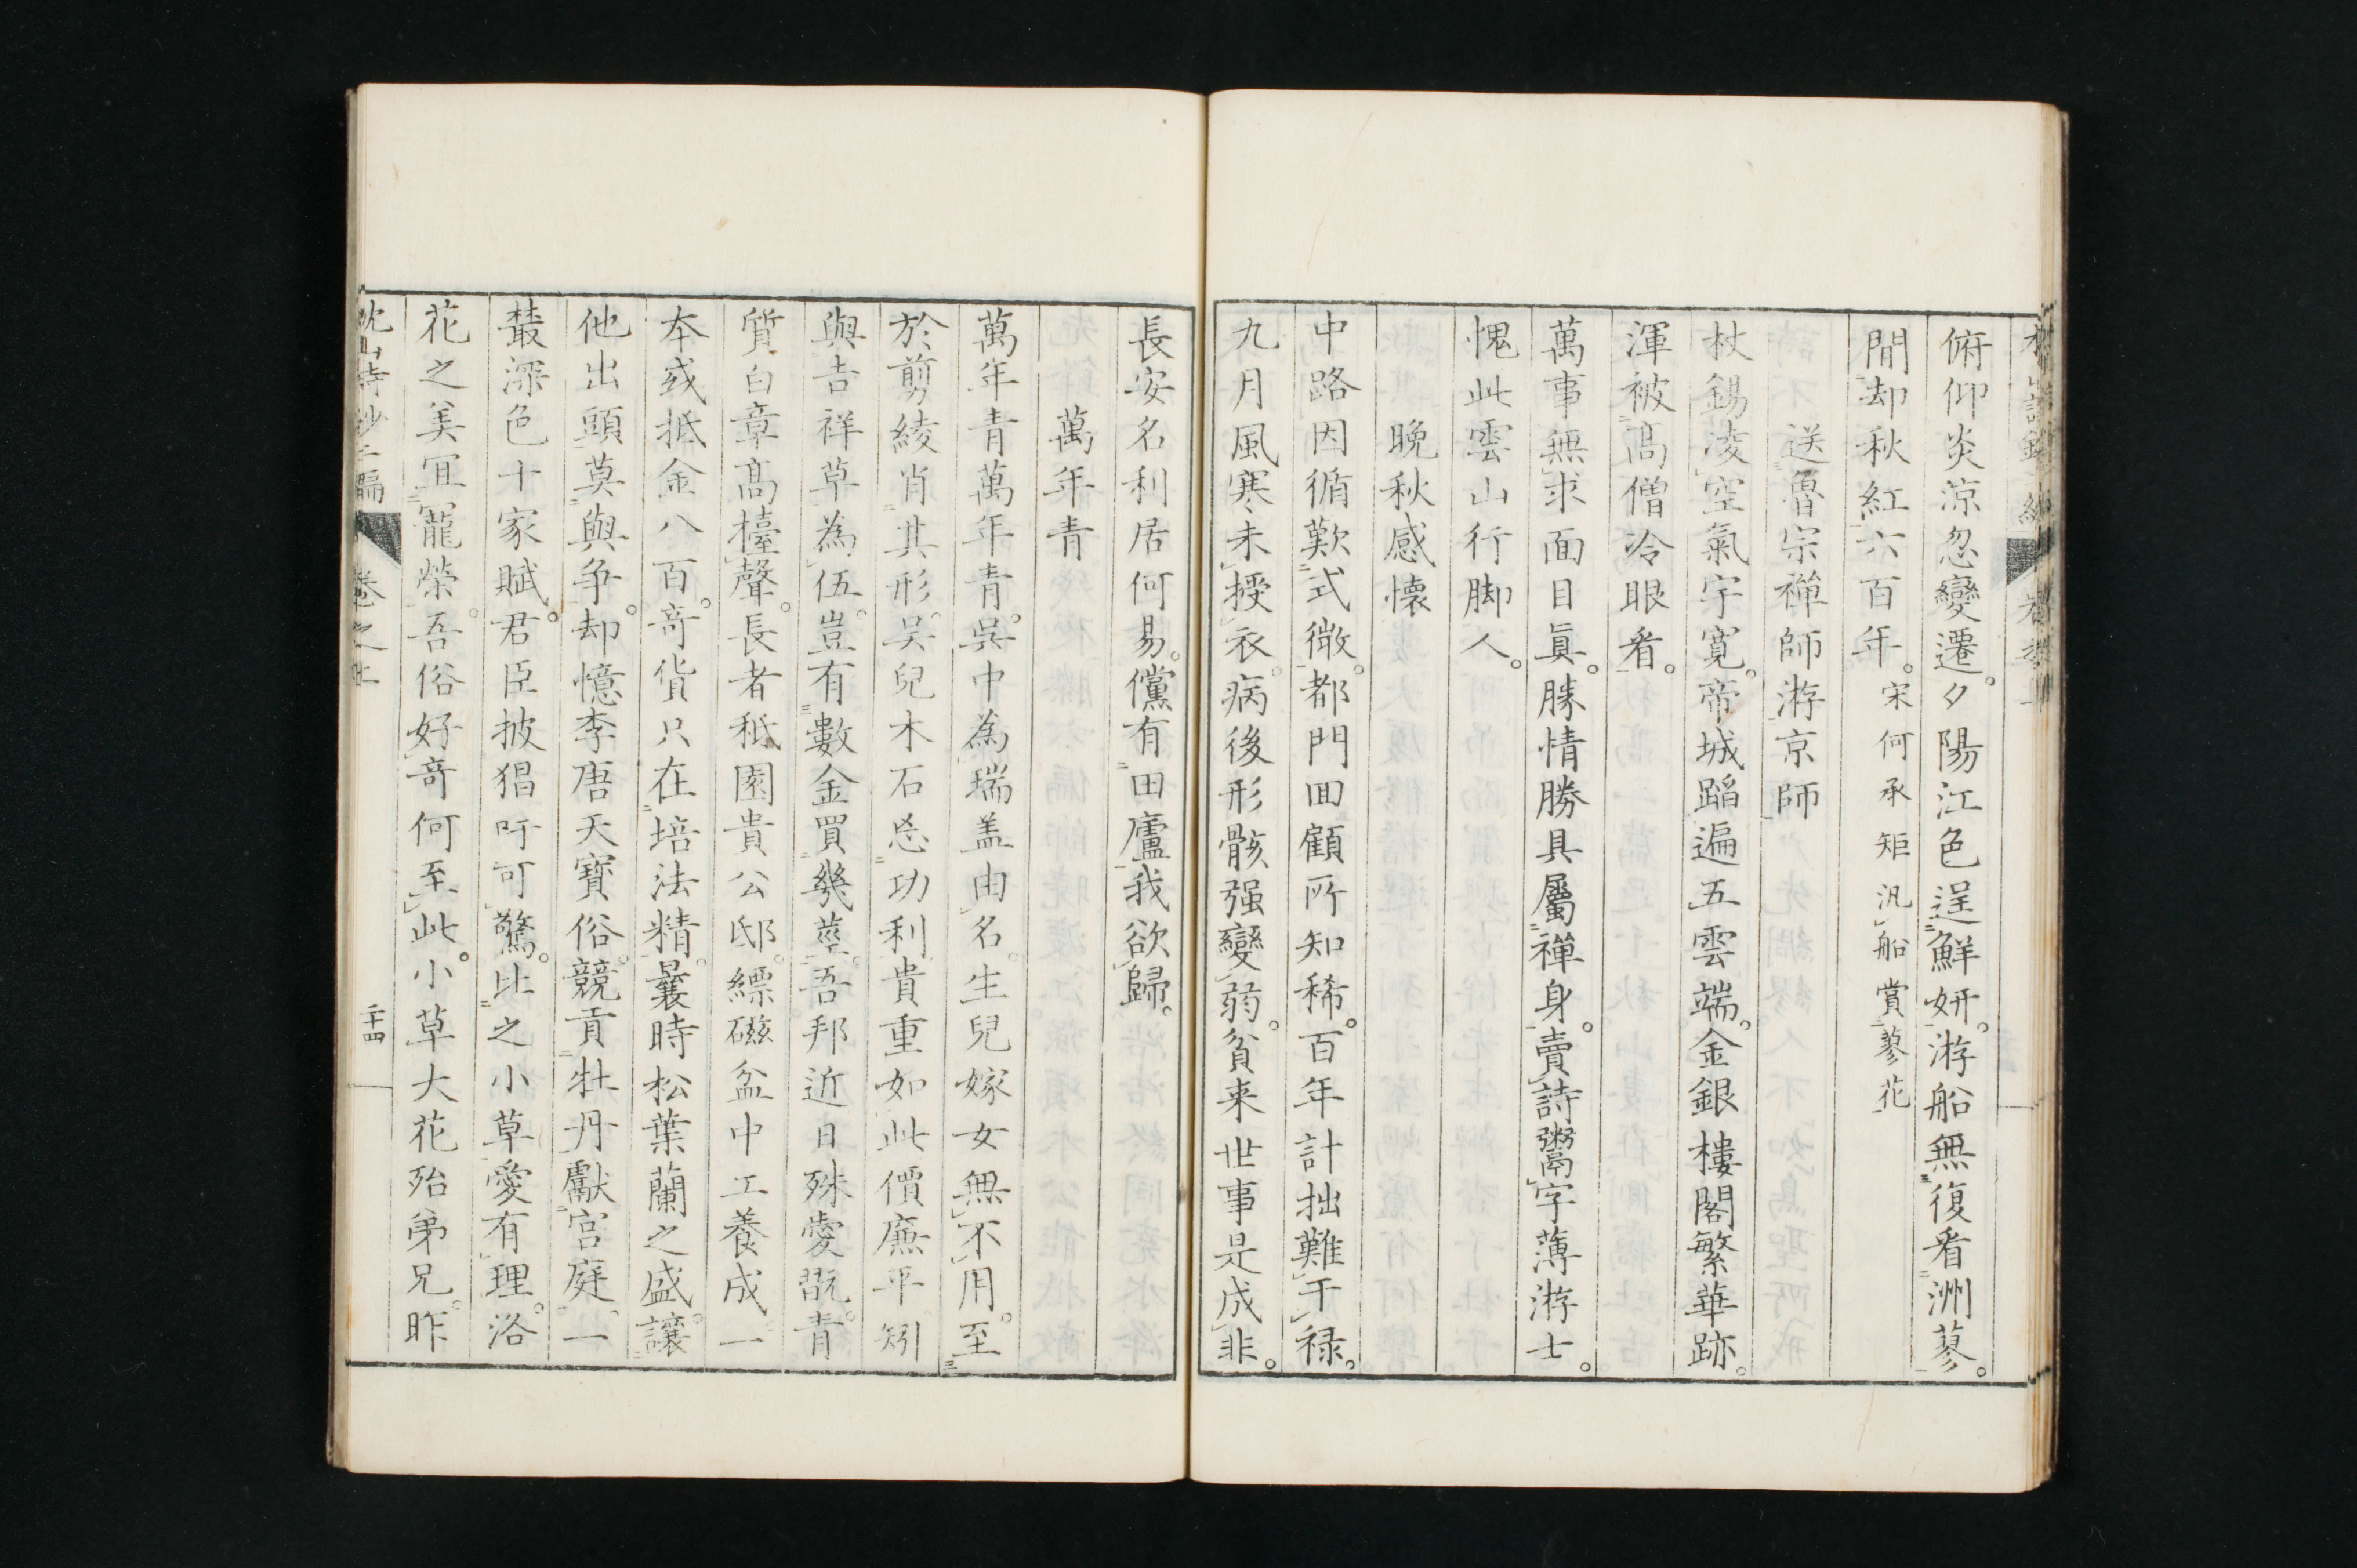 俯仰炎涼忽變遷。夕陽江色逞鮮妍。游船無復看洲蓼。
閒却秋紅六百年。宋何承矩汎船賞蓼花
送魯宗禪師游京師
杖錫凌空氣宇寛。帝城蹈遍五雲端。金銀樓閣繁華跡。
渾被高僧冷眼看。
萬事無求面目眞。勝情勝具屬禪身。賣詩鬻字薄游士。
愧此雲山行脚人。
晩秋感懷
中路因循歎式微。都門回顧所知稀。百年計拙難干禄。
九月風寒未授衣。病後形骸强變弱。貧来世事是成非。
長安名利居何易。儻有田廬我欲歸。
萬年青
萬年青萬年青。呉中為瑞盖由名。生兒嫁女無不用。至
於剪綾肖其形。呉兒木石忌功利。貴重如此價廉平。矧
與吉祥草為伍。豈有數金買幾莖。吾邦近日殊愛翫。青
質白章高檯聲。長者秪園貴公邸。縹磁盆中工養成。一
本或抵金八百。奇貨只在培法精。曩時松葉蘭之盛。讓
他出頭莫與争。却憶李唐天寶俗。競貢牡丹獻宮庭。一
叢深色十家賦。君臣披猖吁可驚。比之小草愛有理。洛
花之美冝寵榮。吾俗好奇何至此。小草大花殆弟兄。昨
枕山詩鈔二編 卷之上 二十四